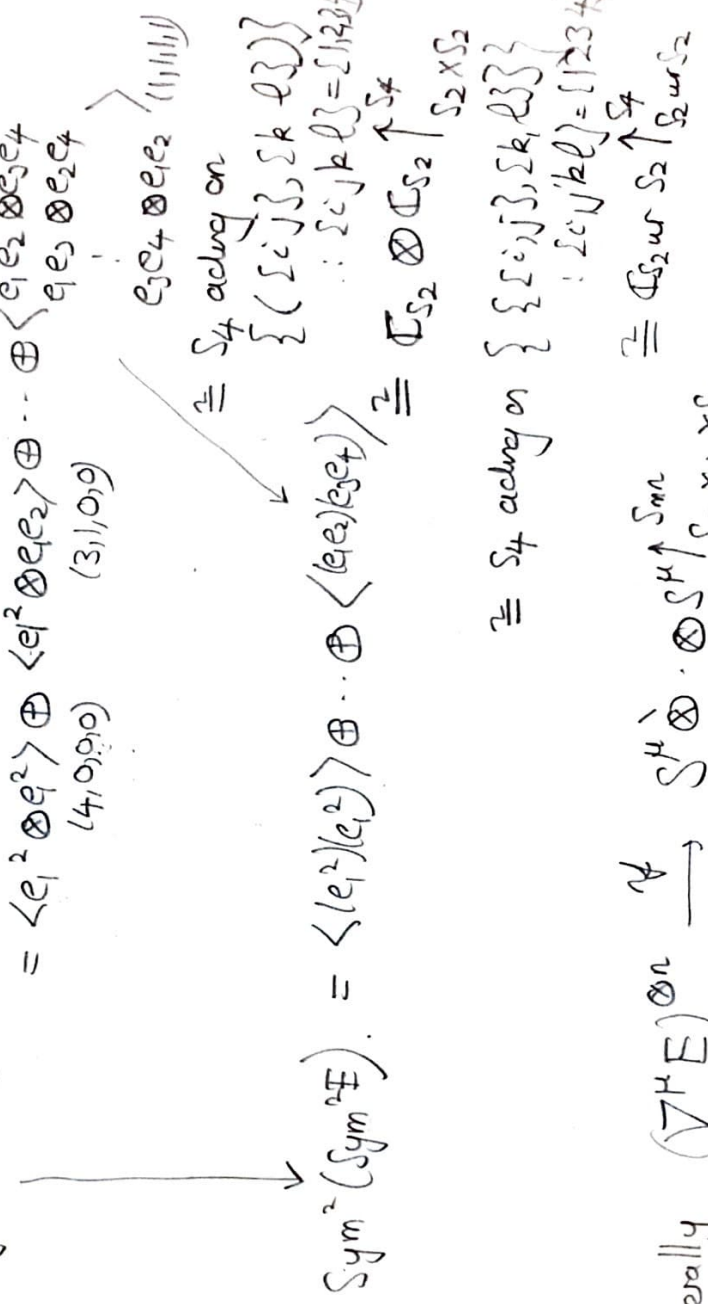 = <e₁² ⊗ e₁²> ⊕ <e₁² ⊗ e₁e₂> ⊕ ... ⊕ <e₁e₂ ⊗ e₃e₄
e₁e₃ ⊗ e₂e₄
⋮
e₃e₄ ⊗ e₁e₂ >
(4,0,0,0) (3,1,0,0) (1,1,1,1)
≅ S₄ acting on
{ ({i,j},{k,l})
: {i,j,k,l} = {1,2,3
≅ ℂ_{S₂} ⊗ ℂ_{S₂} ↑^{S₄}_{S₂×S₂}
Sym² (Sym²E). = <(e₁²)(e₁²)> ⊕ ... ⊕ <(e₁e₂)(e₃e₄)>
≅ S₄ acting on { {{i,j},{k,l}}
: {i,j,k,l} = {1234
≅ ℂ_{S₂ wr S₂} ↑^{S₄}_{S₂ wr S₂}
erally (∇^μ E)^{⊗n} ⟶ S^μ ⊗ · ⊗ S^μ ↑^{Smn}